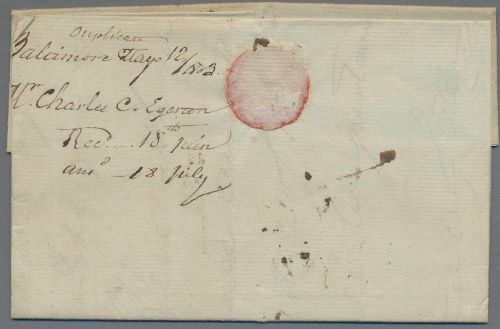 Duplicata
Baltimore May 12/1803.
Mr. Charles C. Egerton
Rec.... 18th Juin
ansd — 18 July